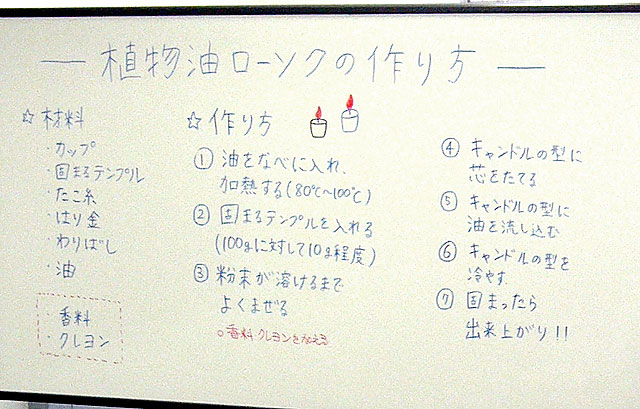 ― 植物油ローソクの作り方 ―
☆ 材料
・カップ
・固まるテンプル
・たこ糸
・はり金
・わりばし
・油
・香料
・クレヨン
☆ 作り方
① 油をなべに入れ、
加熱する(80℃~100℃)
② 固まるテンプルを入れる
(100gに対して10g程度)
③ 粉末が溶けるまで
よくまぜる
○香料・クレヨンを加える
④ キャンドルの型に
芯をたてる
⑤ キャンドルの型に
油を流し込む
⑥ キャンドルの型を
冷やす
⑦ 固まったら
出来上がり!!